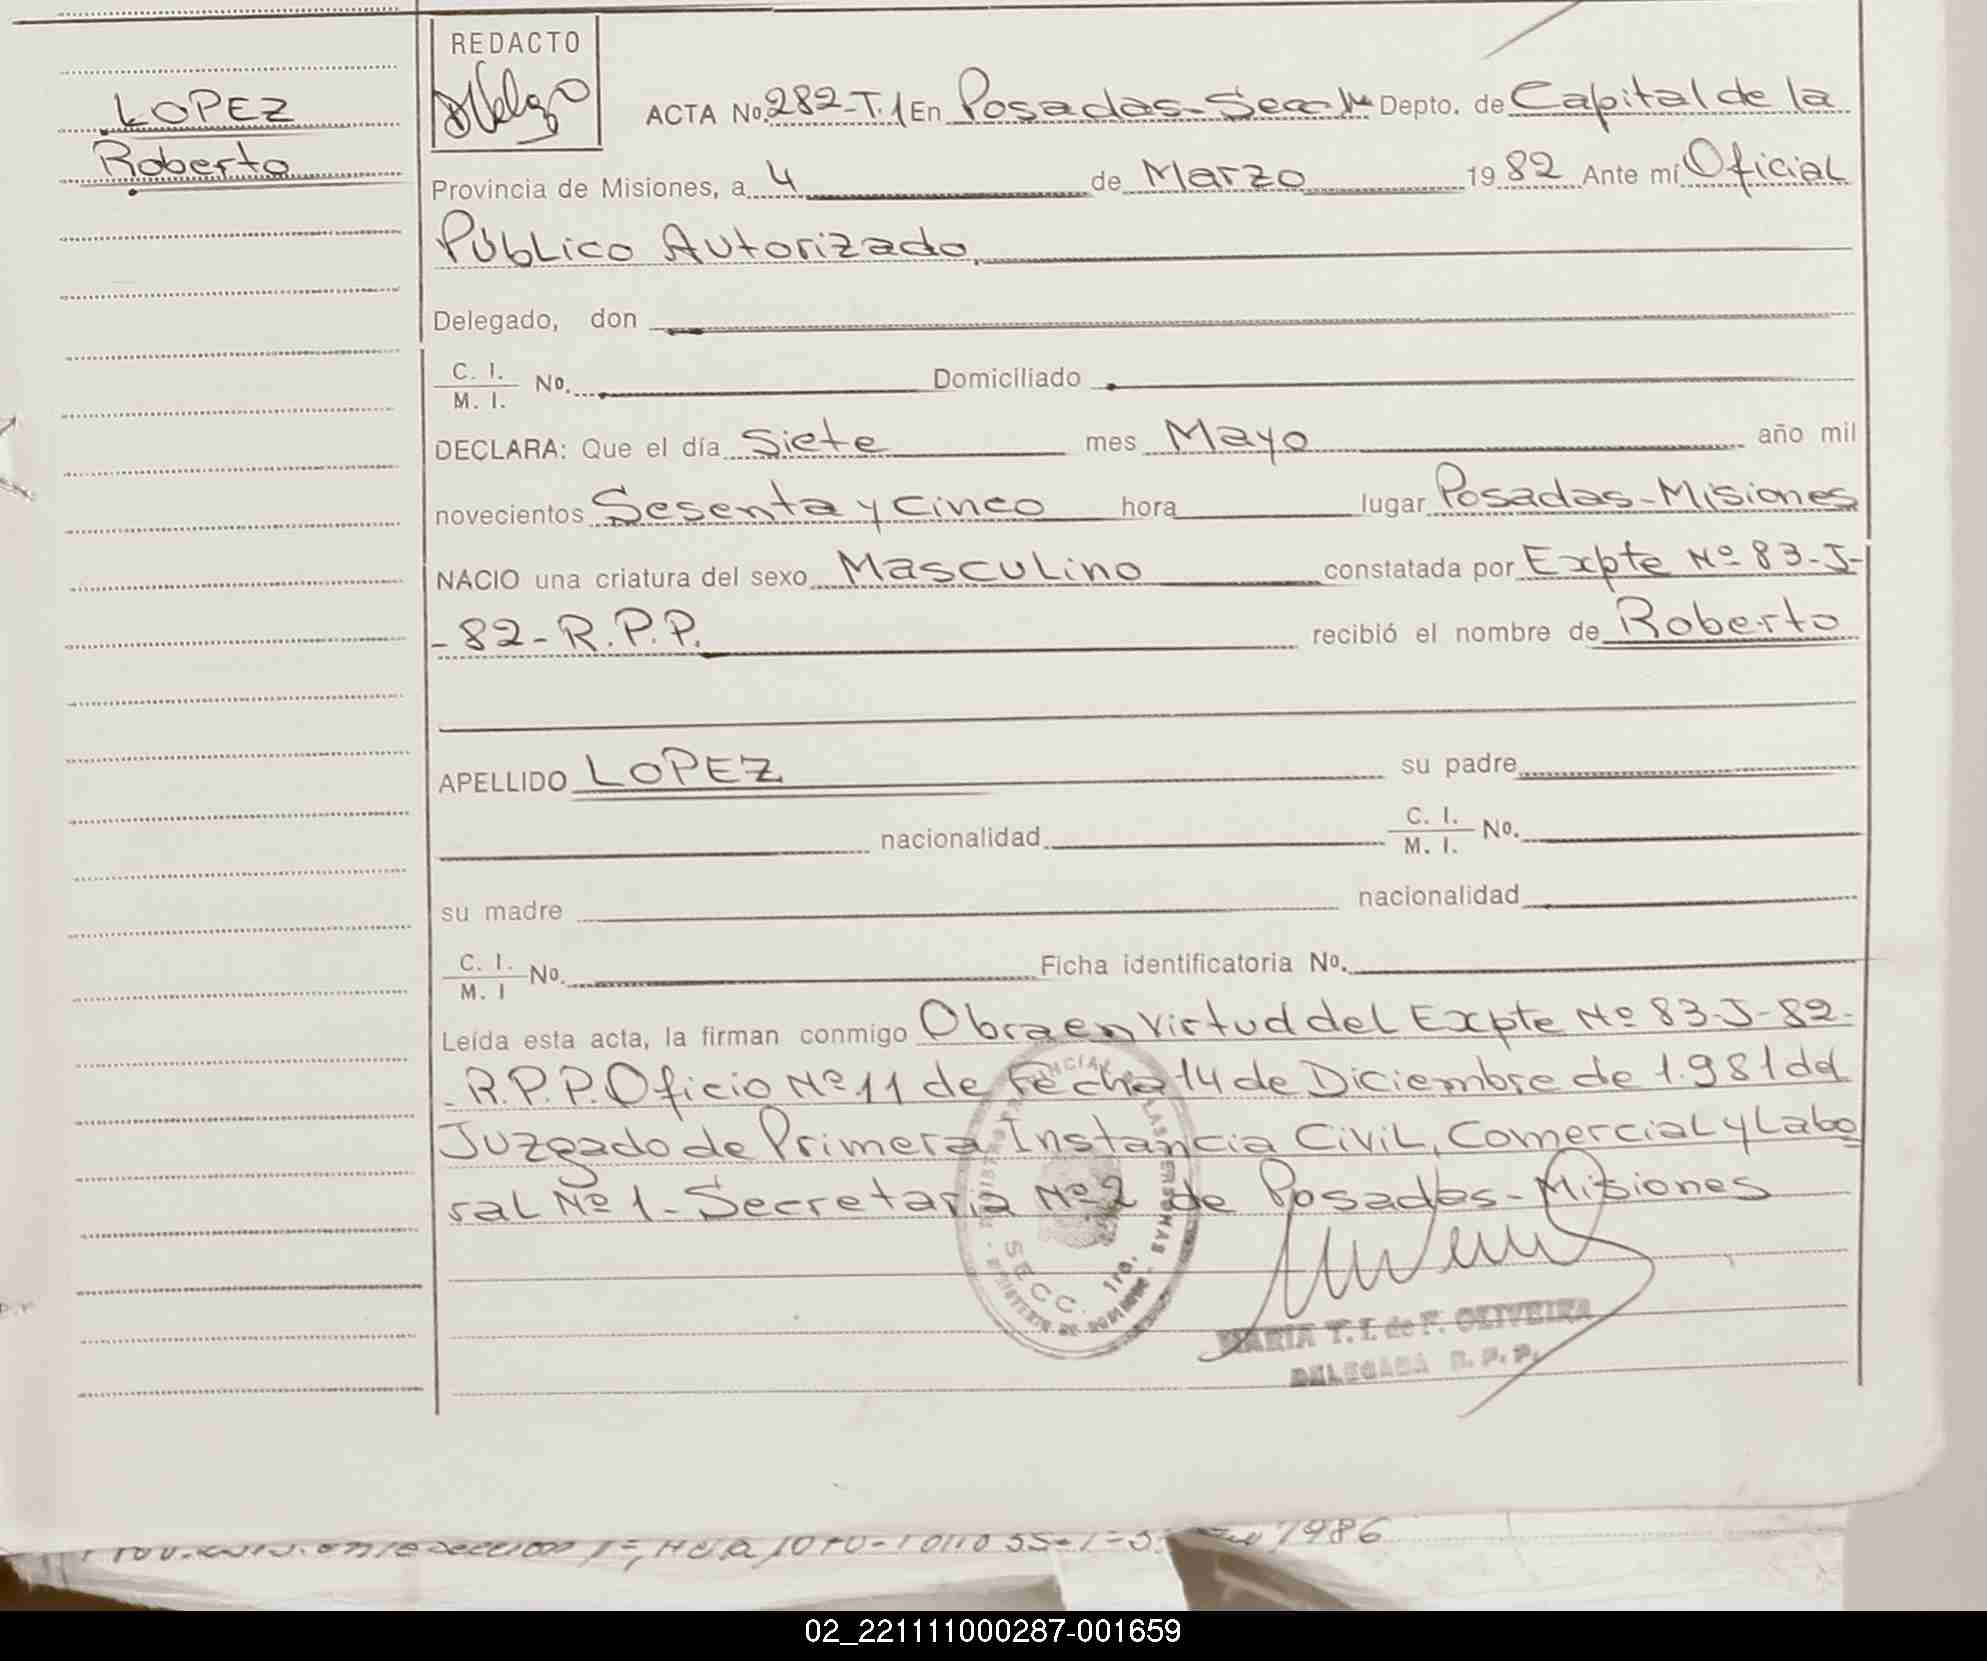 LOPEZ
Roberto
REDACTO
ACTA No. 282-T.1 En Posadas-Secc 1ra Depto. de Capital de la
Provincia de Misiones, a 4 de Marzo 1982 Ante mí Oficial
Público Autorizado.
Delegado, don
C. I.
M. I. No. Domiciliado
DECLARA: Que el día Siete mes Mayo año mil
novecientos Sesenta y Cinco hora lugar Posadas-Misiones
NACIO una criatura del sexo Masculino constatada por Expte Nº 83-J-
-82-R.P.P. recibió el nombre de Roberto
APELLIDO LOPEZ su padre
nacionalidad C. I.
M. I. No.
su madre nacionalidad
C. I.
M. I No. Ficha identificatoria No.
Leída esta acta, la firman conmigo Obra en Virtud del Expte Nº 83-J-82-
-R.P.P. Oficio Nº 11 de Fecha 14 de Diciembre de 1.981 del
Juzgado de Primera Instancia Civil, Comercial y Labo
ral Nº 1-Secretaria Nº 2 de Posadas-Misiones
SECC. 1ra.
MARIA T. I. de F. OLIVEIRA
DELEGADA R. P. P.
1986
02_221111000287-001659